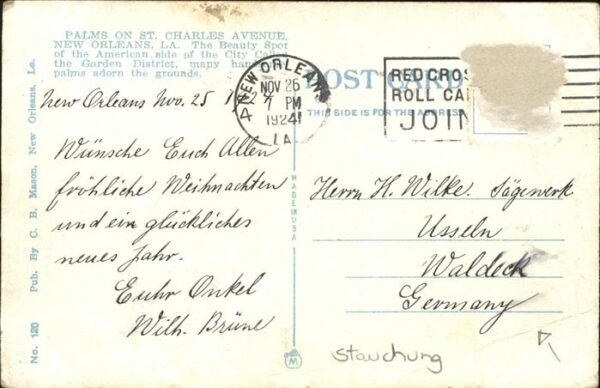 PALMS ON ST. CHARLES AVENUE,
NEW ORLEANS, LA. The Beauty Spot
of the American side of the City Called
the Garden District, many
palms adorn the grounds.
New Orleans Nov. 25 1924
Wünsche Euch Allen
fröhliche Weihnachten
und ein glückliches
neues Jahr.
Euhr Onkel
Wilh. Brüne
No. 120 Pub. By C. B. Mason, New Orleans, La.
NEW ORLEANS
NOV 26
7 PM
1924
LA.
4
POST CARD
THIS SIDE IS FOR THE ADDRESS
RED CROS
ROLL CA
JOIN
MADE IN USA
Herrn H. Wilke. Sägewerk
Usseln
Waldeck
Germany
M
stauchung